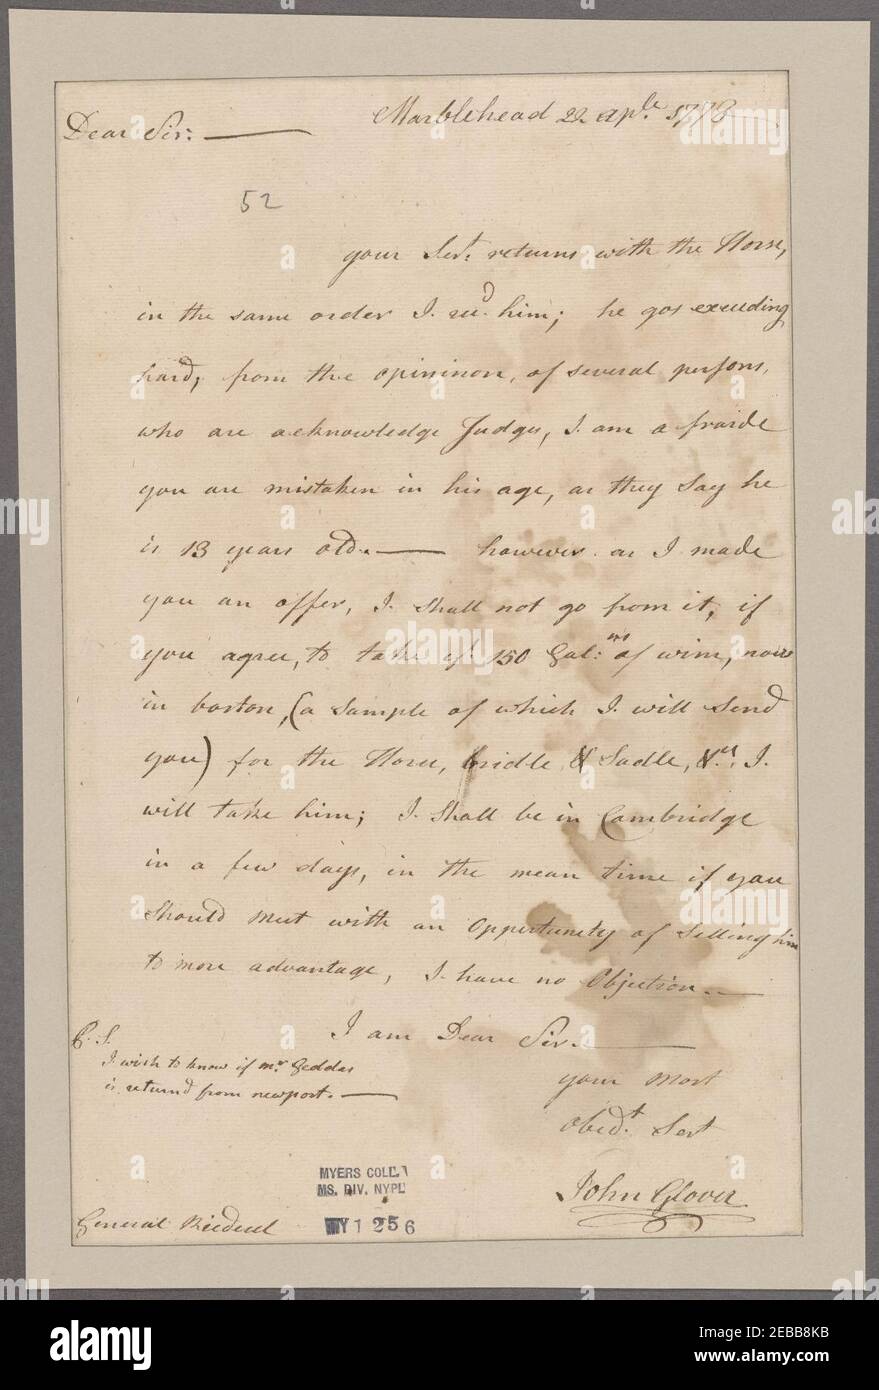 Marblehead 22 aple. 1778
Dear Sir:
52
your Sert. returns with the Horse,
in the same order I recd. him; he gos exceeding
hard, from the opininon, of several persons,
who are acknowledge Judges, I am a fraide
you are mistaken in his age, as they say he
is 13 years old. however as I made
you an offer, I shall not go from it, if
you agree, to take ye. 150 Gal:ns of wine, now
in boston, (a sample of which I will send
you) for the Horse, bridle, & Sadle, &c. I
will take him; I shall be in Cambridge
in a few days, in the mean time if you
should meet with an oppertunety of selling him
to more advantage, I have no Objection.
I am Dear Sir.
P. S.
I wish to know if Mr Geddes
is returnd from newport.
your most
obedt. Sert
John Glover
General Riedesel
MYERS COLL.
MS. DIV. NYPL
MY 1 2 5 6
alamy
Image ID: 2EBB8KB
www.alamy.com